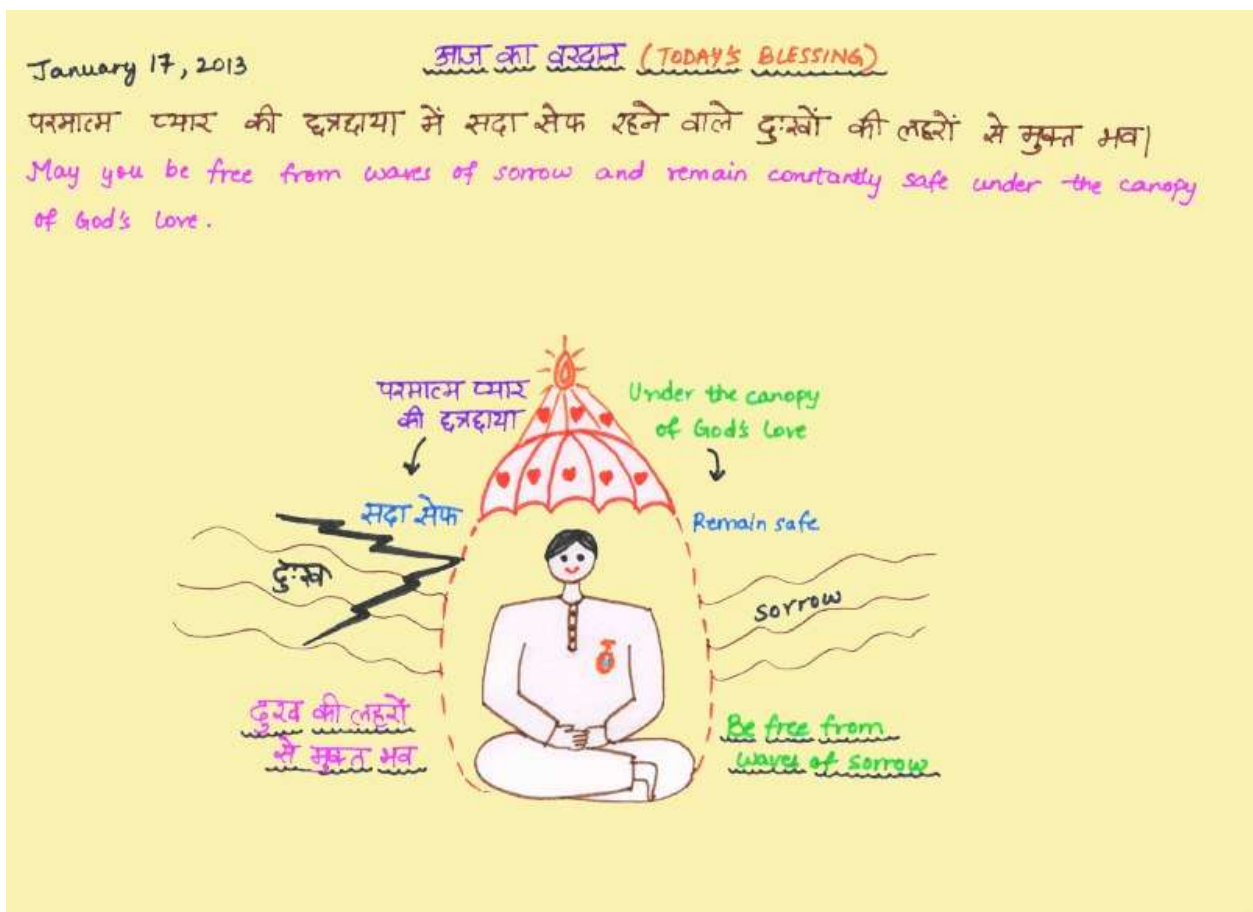 January 17, 2013
आज का वरदान (TODAY'S BLESSING)
परमात्म प्यार की छत्रछाया में सदा सेफ रहने वाले दुःखों की लहरों से मुक्त भव।
May you be free from waves of sorrow and remain constantly safe under the canopy
of God's Love.
परमात्म प्यार
की छत्रछाया
Under the canopy
of God's Love
सदा सेफ
Remain safe
दुःख
sorrow
दुख की लहरों
से मुक्त भव
Be free from
waves of sorrow